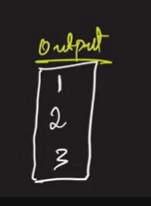 Output
1
2
3